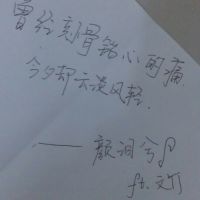 曾经刻骨铭心的痛
今夕却云淡风轻.
—— 颜词兮
ft.文